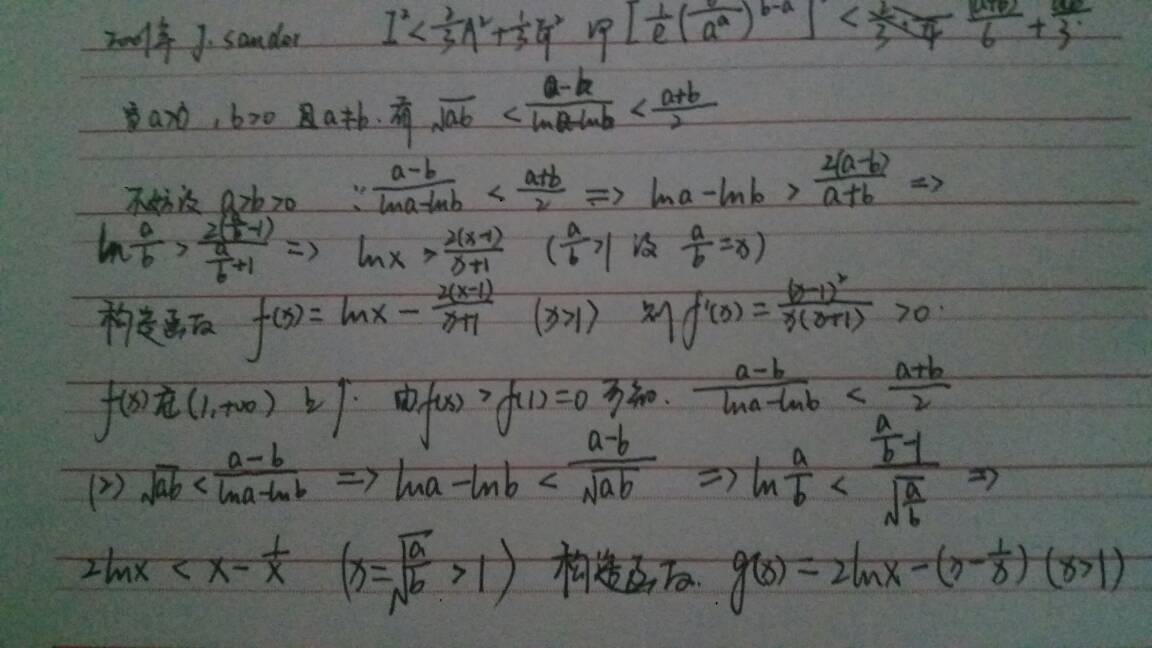 2001年 J. sandor I² < 2/3 A² + 1/3 G² 即 [1/e( /a^a)^(b-a)] < (a+b)/6 + /3
当 a>0, b>0 且 a≠b. 有 √ab < (a-b)/(lna-lnb) < (a+b)/2
不妨设 a>b>0 ∵ (a-b)/(lna-lnb) < (a+b)/2 => lna-lnb > 2(a-b)/(a+b) =>
ln a/b > 2(a/b-1)/(a/b+1) => lnx > 2(x-1)/(x+1) (a/b>1 设 a/b=x)
构造函数 f(x) = lnx - 2(x-1)/(x+1) (x>1) 则 f'(x) = (x-1)²/x(x+1) >0.
f(x)在(1,+∞)上↑. 由f(x) > f(1)=0 可知. (a-b)/(lna-lnb) < (a+b)/2
(2) √ab < (a-b)/(lna-lnb) => lna-lnb < (a-b)/√ab => ln a/b < (a/b-1)/√(a/b) =>
2lnx < x-1/x (x=√(a/b) >1) 构造函数. g(x) = 2lnx-(x-1/x) (x>1)